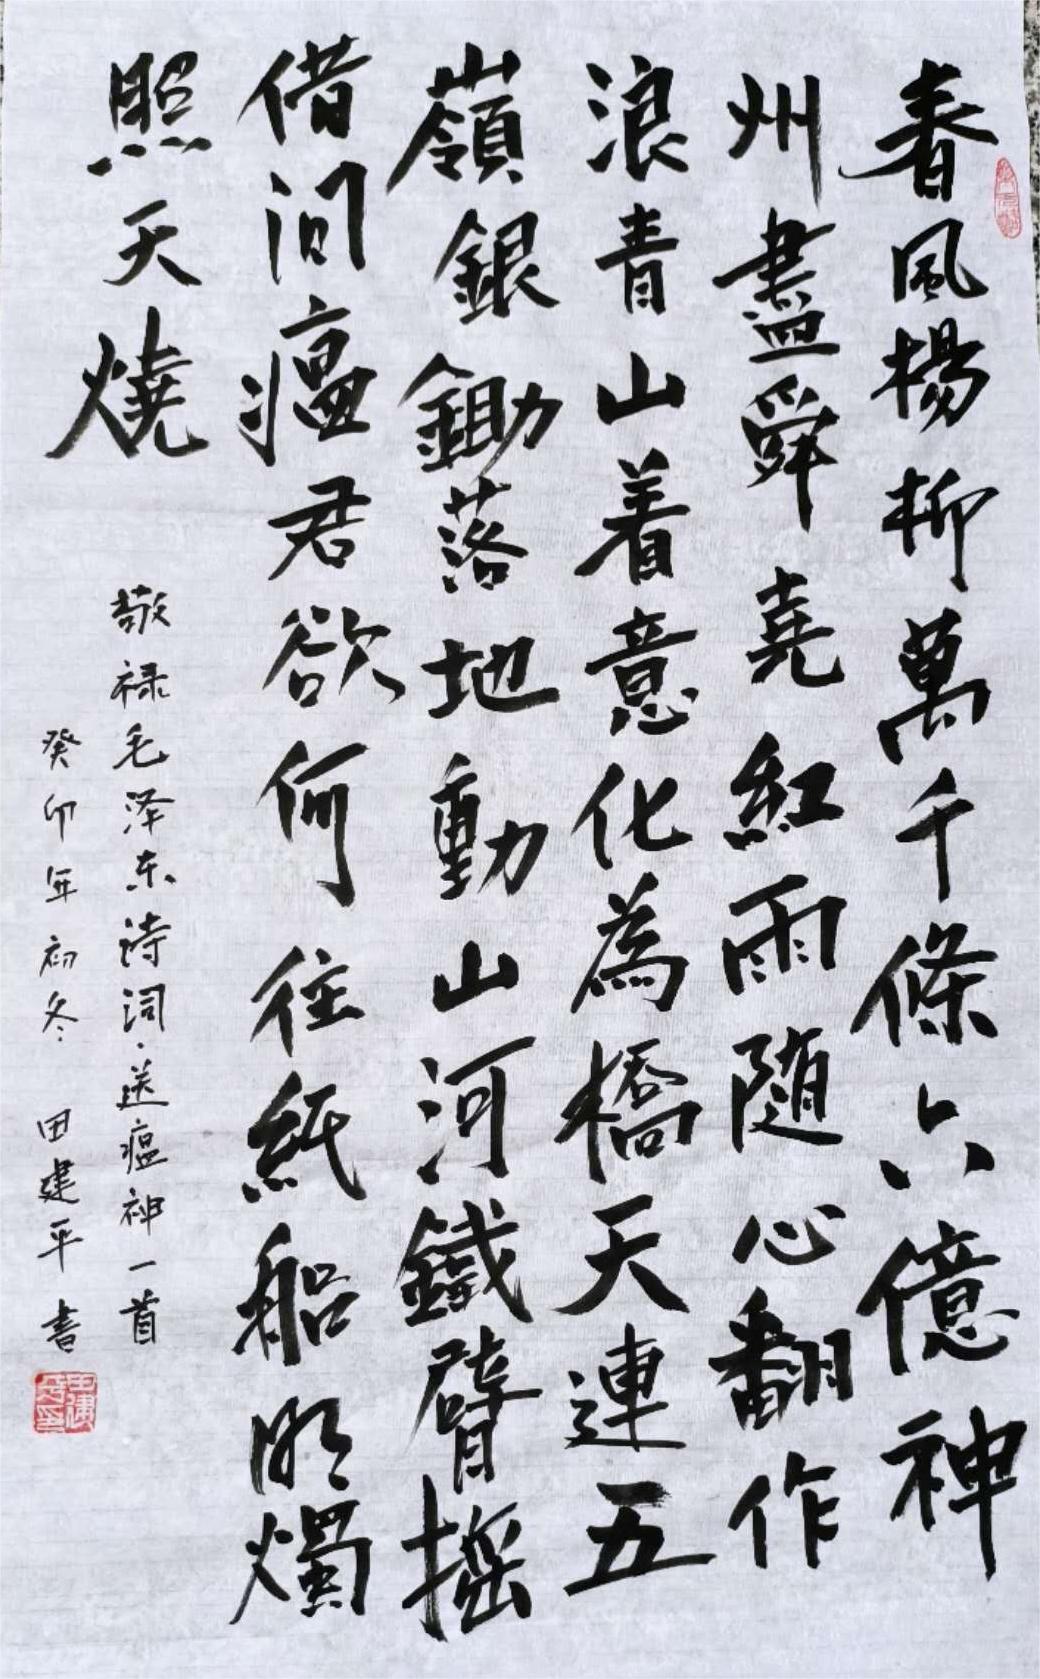 春風楊柳萬千條六億神
州盡舜堯紅雨随心翻作
浪青山着意化為橋天連五
嶺銀鋤落地動山河鐵臂摇
借问瘟君欲何往紙船明燭
照天燒
敬禄毛泽东诗词·送瘟神一首
癸卯年初冬 田建平書